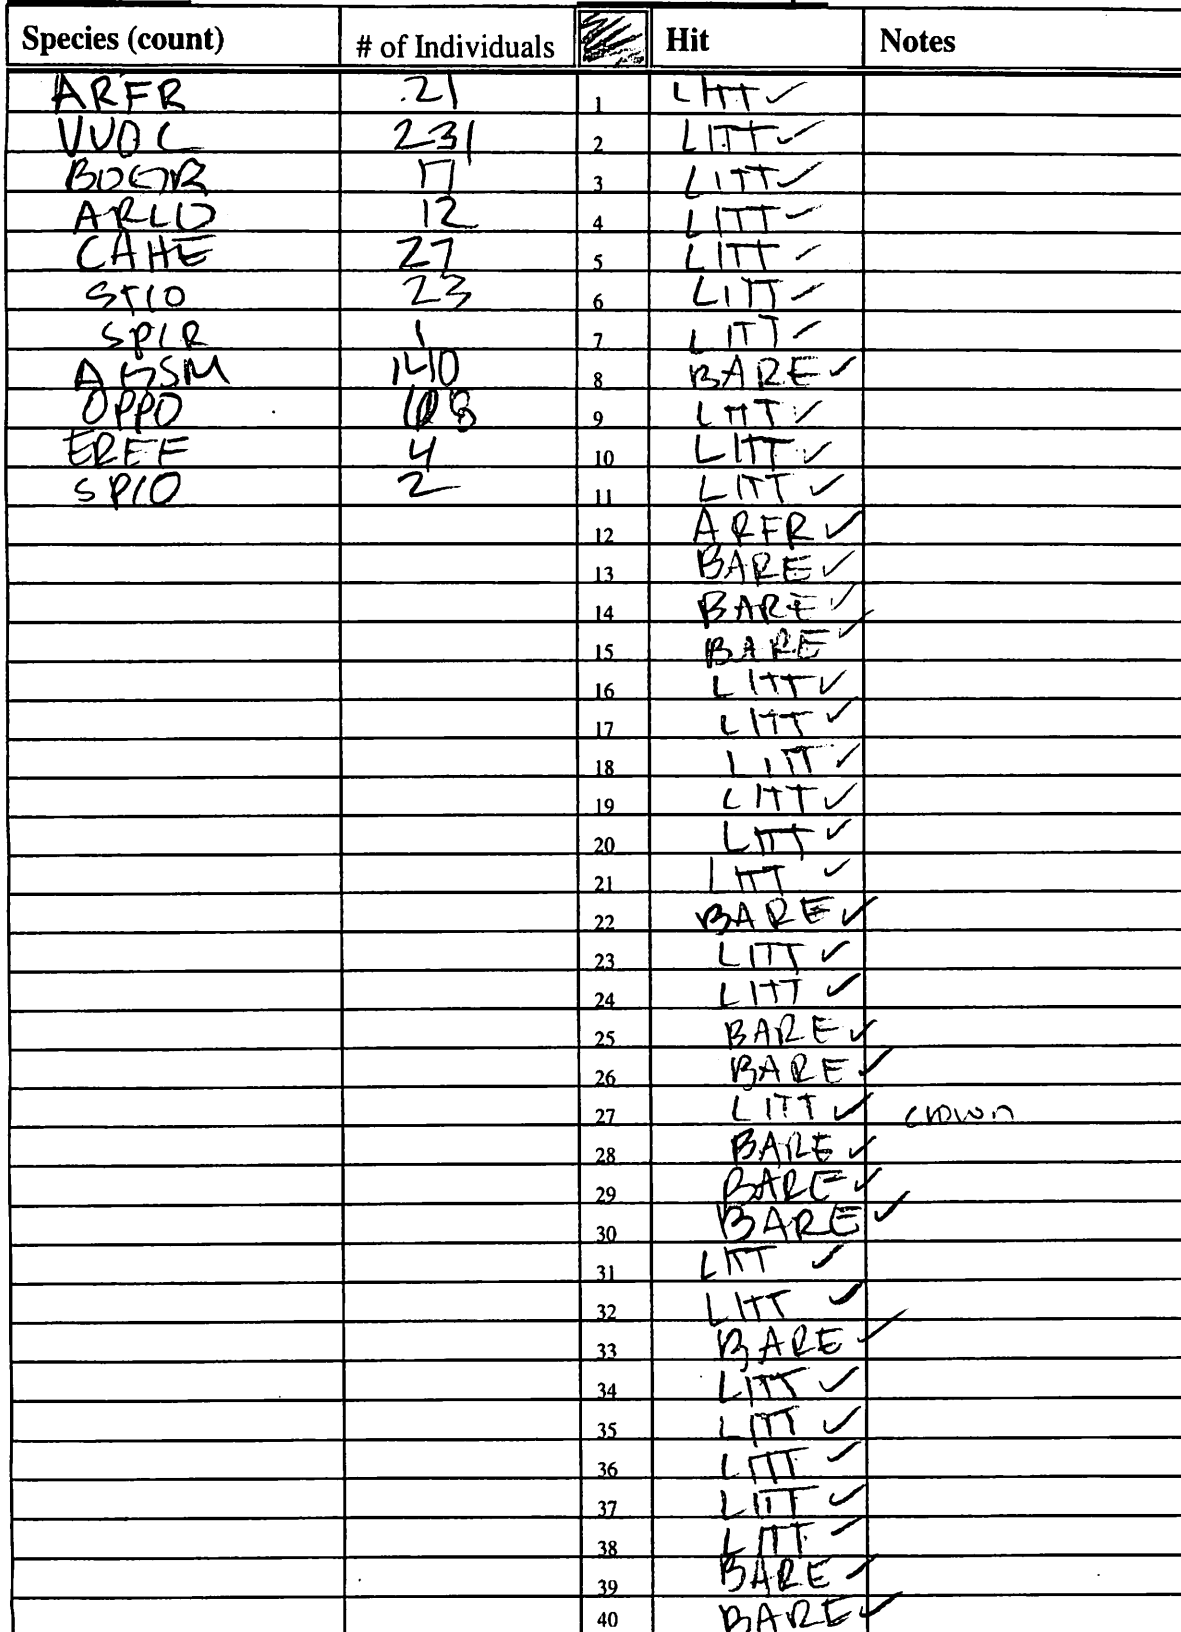 Species (count) # of Individuals Hit Notes
ARFR 21 1 LITT ✓
VUOC 231 2 LITT ✓
BOGR 17 3 LITT ✓
ARLU 12 4 LITT ✓
CAHE 27 5 LITT ✓
STCO 23 6 LITT ✓
SPCR 1 7 LITT ✓
AGSM 140 8 BARE ✓
OPPO 9 LITT ✓
EREF 4 10 LITT ✓
SPCO 2 11 LITT ✓
12 ARFR ✓
13 BARE ✓
14 BARE ✓
15 BARE ✓
16 LITT ✓
17 LITT ✓
18 LITT ✓
19 LITT ✓
20 LITT ✓
21 LITT ✓
22 BARE ✓
23 LITT ✓
24 LITT ✓
25 BARE ✓
26 BARE ✓
27 LITT ✓ crown
28 BARE ✓
29 BARE ✓
30 BARE ✓
31 LITT ✓
32 LITT ✓
33 BARE ✓
34 LITT ✓
35 LITT ✓
36 LITT ✓
37 LITT ✓
38 LITT ✓
39 BARE ✓
40 BARE ✓